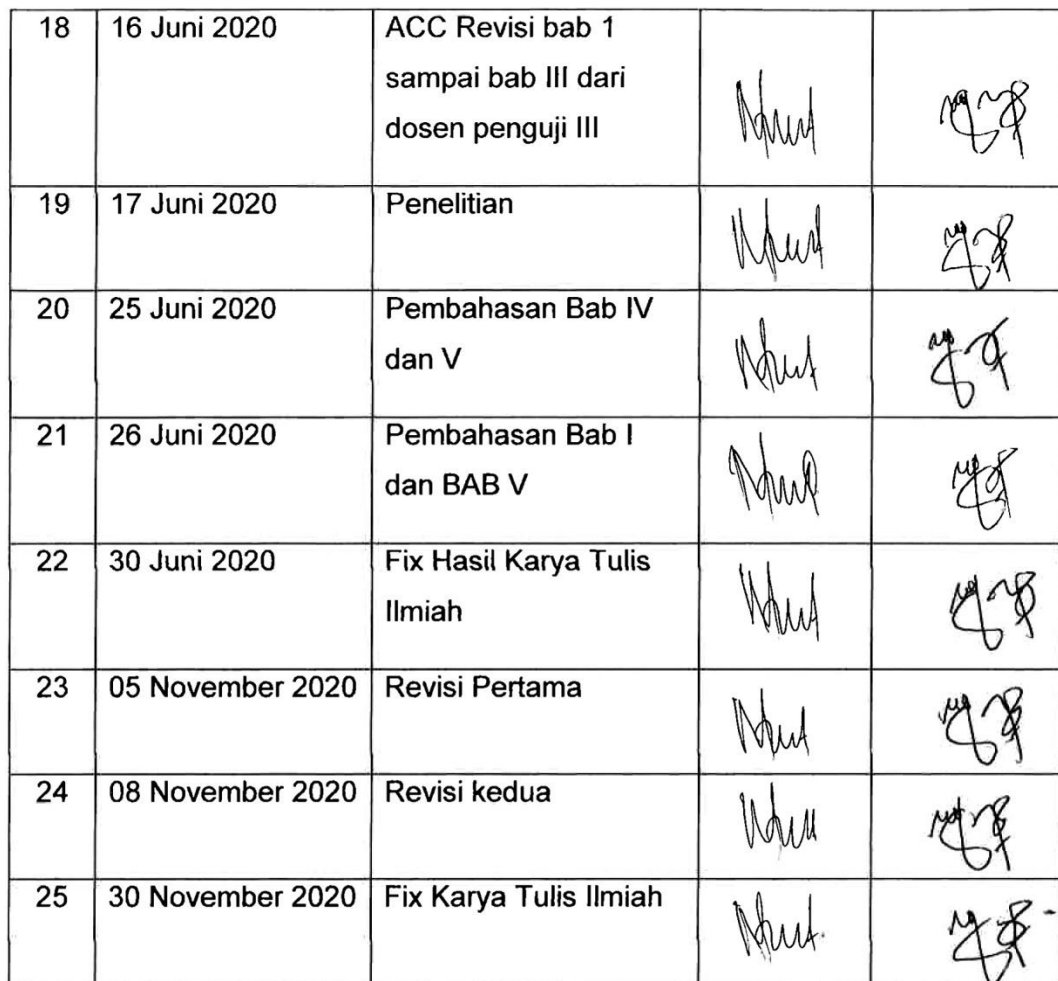 18 16 Juni 2020 ACC Revisi bab 1
sampai bab III dari
dosen penguji III
19 17 Juni 2020 Penelitian
20 25 Juni 2020 Pembahasan Bab IV
dan V
21 26 Juni 2020 Pembahasan Bab I
dan BAB V
22 30 Juni 2020 Fix Hasil Karya Tulis
Ilmiah
23 05 November 2020 Revisi Pertama
24 08 November 2020 Revisi kedua
25 30 November 2020 Fix Karya Tulis Ilmiah